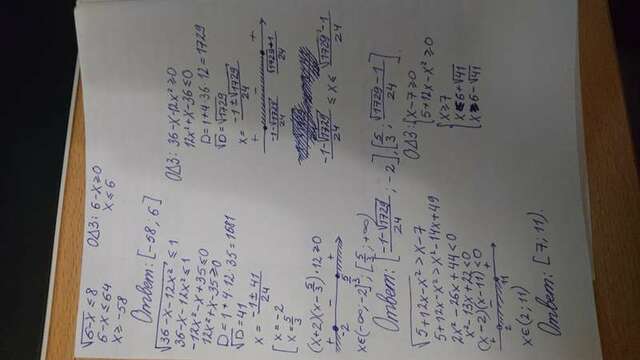 √6-x ≤ 8
6-x ≤ 64
x ≥ -58
ОДЗ: 6-x ≥ 0
x ≤ 6
Ответ: [-58, 6]
√36-x-12x² ≤ 1
36-x-12x² ≤ 1
-12x²-x+35 ≤ 0
12x²+x-35 ≥ 0
D = 1+4·12·35 = 1681
√D = 41
x = -1±41/24
[x = -2
[x = 5/3
(x+2)(x-5/3)·12 ≥ 0
+ - +
-2 5/3
x∈(-∞;-2]; [5/3; +∞)
ОДЗ: 36-x-12x² ≥ 0
12x²+x-36 ≤ 0
D = 1+4·36·12 = 1729
√D = √1729
x = -1±√1729/24
+ - +
-1-√1729/24 √1729+1/24
-1-√1729/24 ≤ x ≤ √1729-1/24
Ответ: [-1-√1729/24; -2], [5/3; √1729-1/24].
√5+12x-x² > x-7
5+12x-x² > x²-14x+49
2x²-26x+44 < 0
x²-13x+22 < 0
(x-2)(x-11) < 0
+ - +
2 11
x∈(2; 11)
ОДЗ: {x-7 ≥ 0
{5+12x-x² ≥ 0
{x ≥ 7
{x ≤ 6+√41
{x ≥ 6-√41
Ответ: [7, 11).